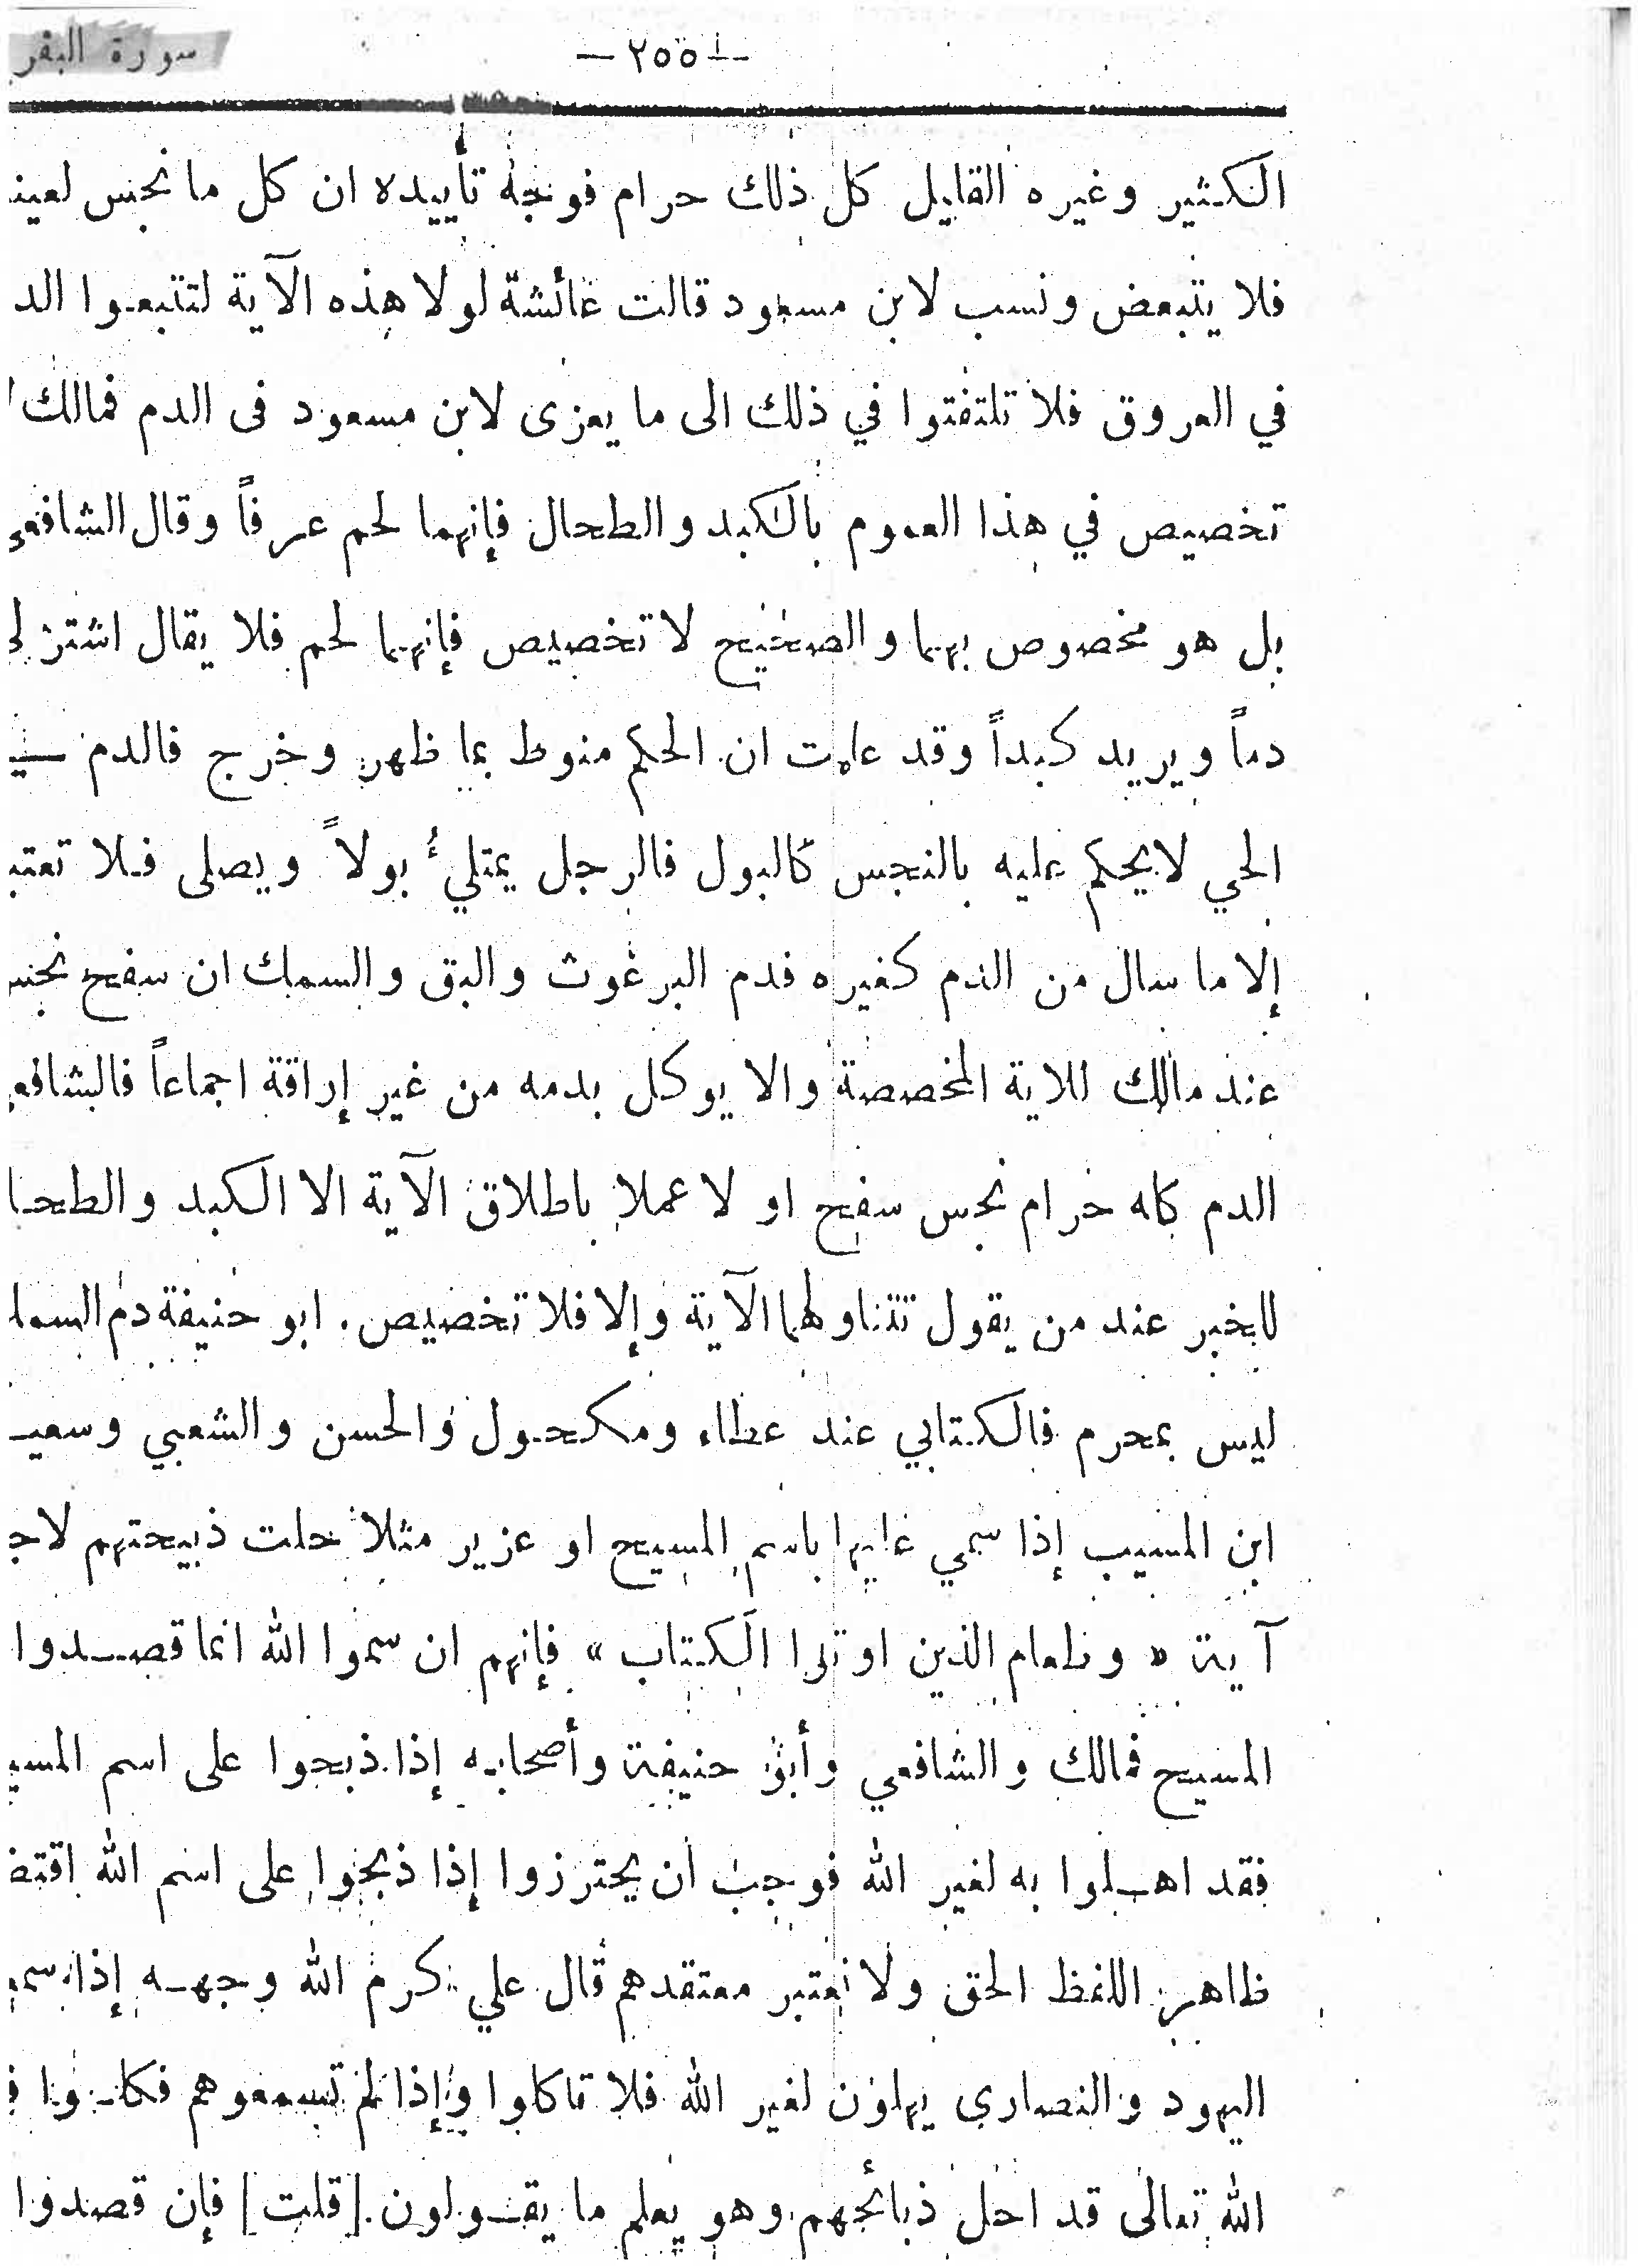 سورة البقر
— ٢٥٥ —
الكثير وغيره القليل كل ذلك حرام فوجه تأييده ان كل ما نجس لعينه
فلا يتبعض ونسب لابن مسعود قالت عائشة لولا هذه الآية لتتبعوا الد
في العروق فلا تلتفتوا في ذلك الى ما يعزى لابن مسعود فى الدم فمالك
تخصيص في هذا العموم بالكبد والطحال فإنهما لحم عرفاً وقال الشافعي
بل هو مخصوص بهما والصحيح لا تخصيص فإنهما لحم فلا يقال اشتر لي
دماً ويريد كبداً وقد علمت ان الحكم منوط بما ظهر وخرج فالدم
الحي لا يحكم عليه بالنجس كالبول فالرجل يمتلئ بولاً ويصلى فلا تعتبـ
إلا ما سال من الدم كغيره فدم البرغوث والبق والسمك ان سفح نجس
عند مالك للاية المخصصة والا يوكل بدمه من غير إراقة اجماعاً فالشافعي
الدم كله حرام نجس سفح او لا عملا باطلاق الآية الا الكبد والطحا
للخبر عند من يقول تتناولهما الآية وإلا فلا تخصيص . ابو حنيفة دم السمك
ليس بمحرم فالكتابي عند عطاء ومكحول والحسن والشعبي وسعيـ
ابن المسيب إذا سمي عليها باسم المسيح او عزير مثلا حلت ذبيحتهم لاجـ
آية « وطعام الذين اوتوا الكتاب » فإنهم ان سموا الله انما قصدوا
المسيح فمالك والشافعي وأبو حنيفة وأصحابه إذا ذبحوا على اسم المسيـ
فقد اهلوا به لغير الله فوجب ان يحترزوا إذا ذبحوا على اسم الله اقتضـ
ظاهر اللفظ الحق ولا نعتبر معتقدهم قال علي كرم الله وجهه إذا سمع
اليهود والنصارى يهلون لغير الله فلا تاكلوا وإذا لم تسمعوهم فكلوا فـ
الله تعالى قد احل ذبائحهم وهو يعلم ما يقولون . [ قلت ] فإن قصدوا